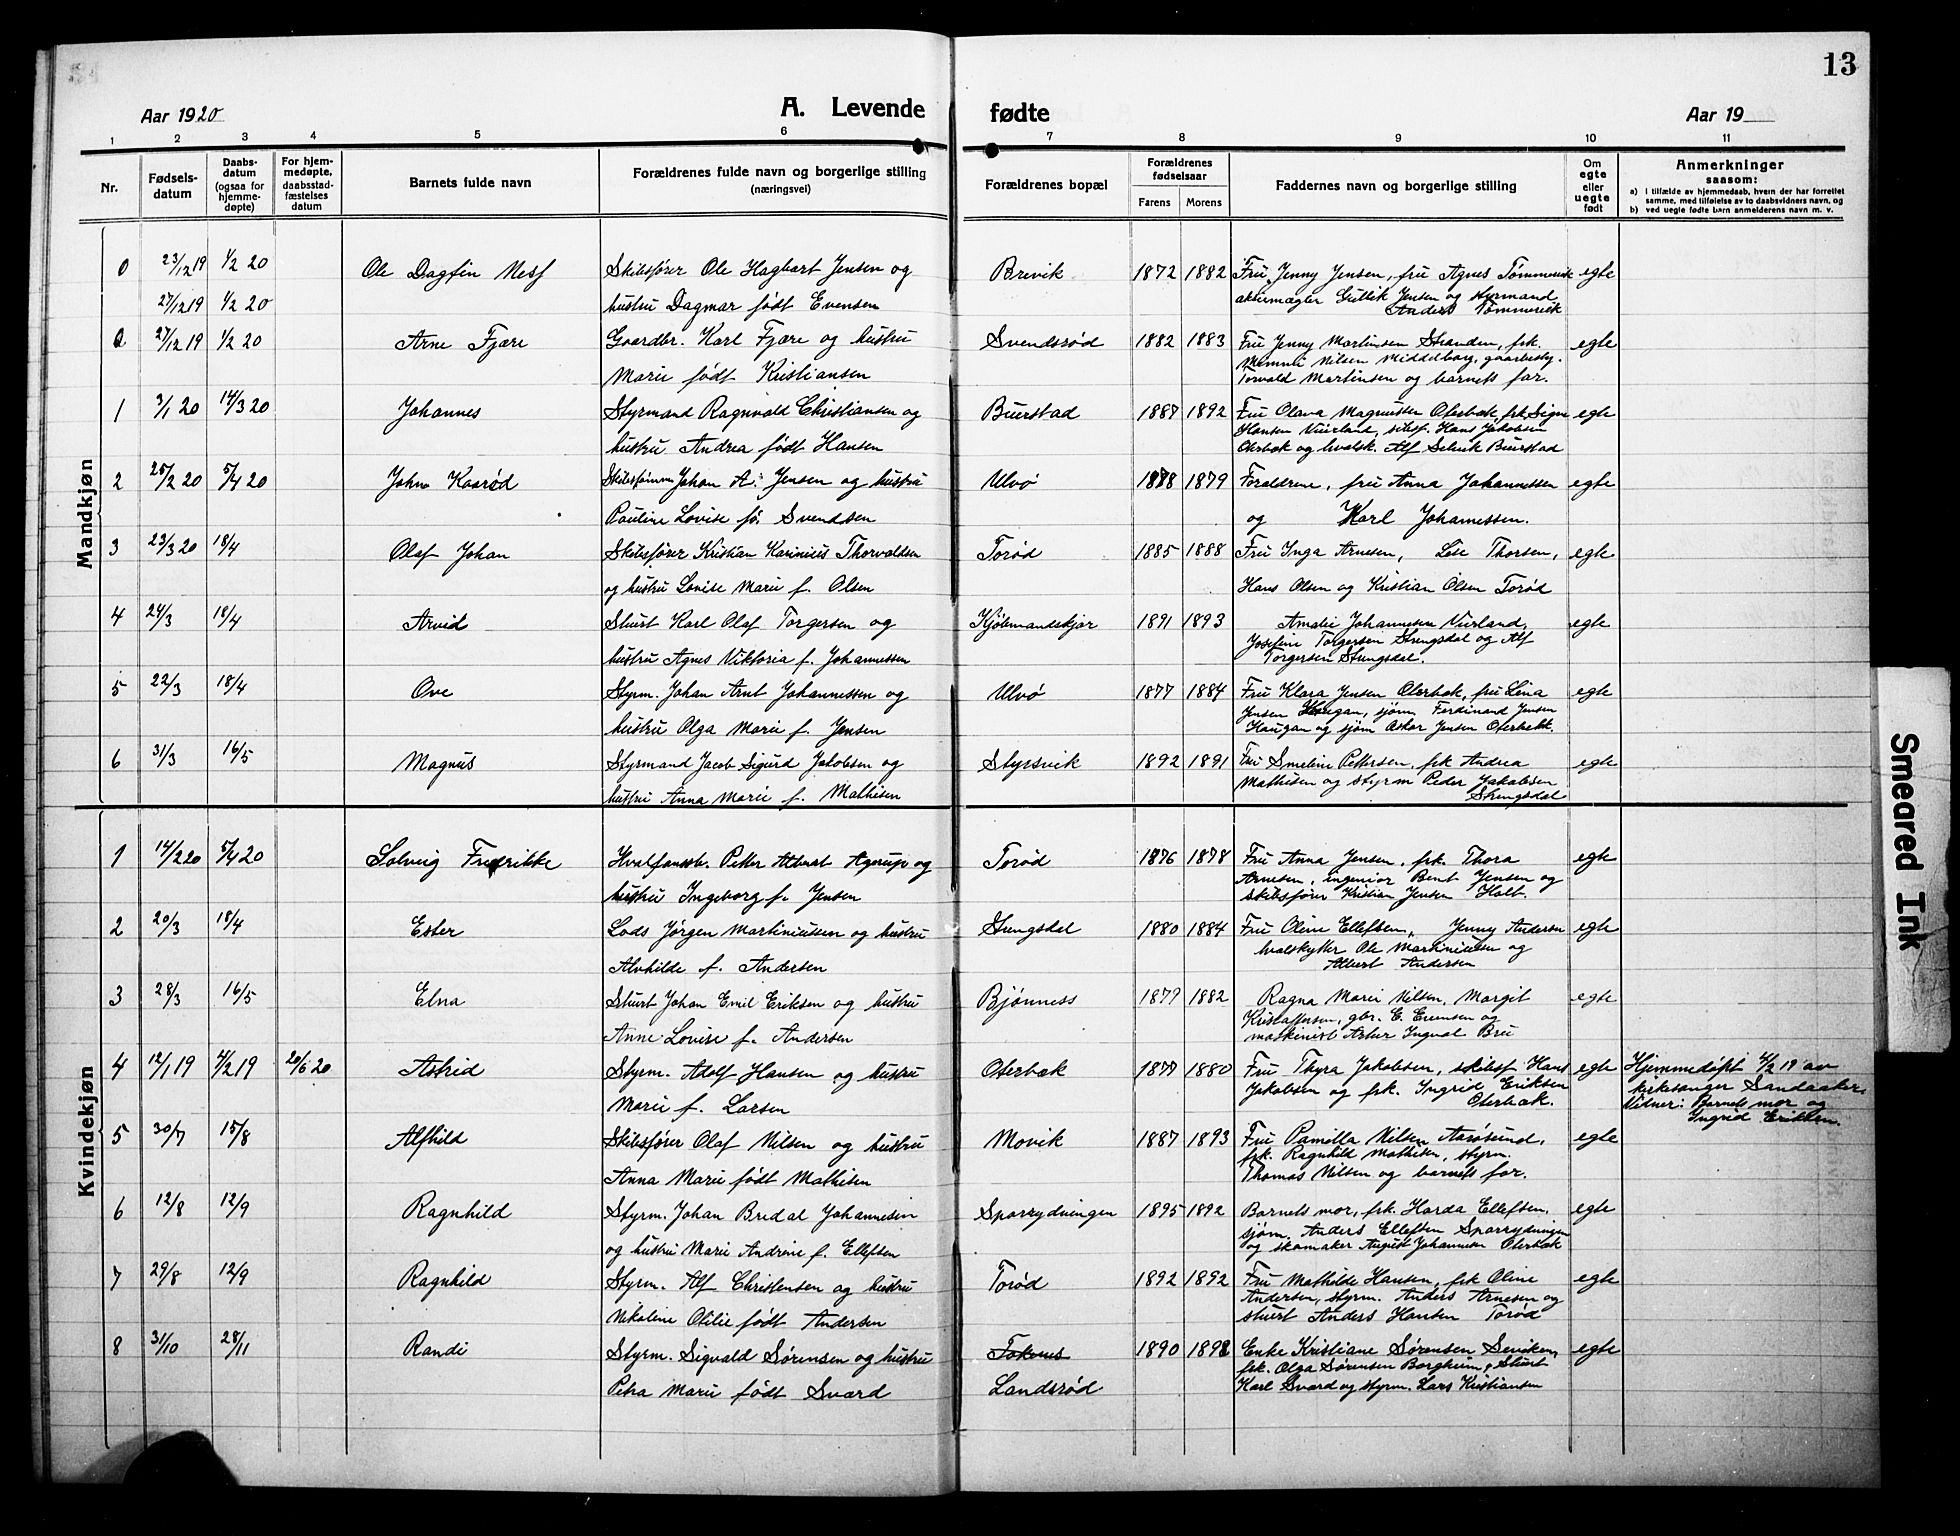 13
Aar 1920 A. Levende fødte Aar 19
1 2 3 4 5 6 7 8 9 10 11
Nr. Fødselsdatum Daabsdatum (ogsaa for hjemmedøpte) For hjemmedøpte, daabsstadfæstelses datum Barnets fulde navn Forældrenes fulde navn og borgerlige stilling (næringsvei) Forældrenes bopæl Forældrenes fødselsaar Farens Morens Faddernes navn og borgerlige stilling Om egte eller uegte født Anmerkninger saasom:
a) i tilfælde av hjemmedaab, hvem der har forrettet samme, med tilføielse av to daabsvidners navn, og
b) ved uegte fødte barn anmelderens navn m. v.
Mandkjøn
0 23/12 19 1/2 20 Ole Dagfin Næss Skibsfører Ole Hagbart Jensen og Brevik 1872 1882 Fru Jenny Jensen, fru Agnes Tømmerik egte
27/12 19 1/2 20 hustru Dagmar født Evensen aktiemægler Gullik Jensen og styrmand
Anders Tømmerik
0 27/12 19 1/2 20 Arne Fjære Gaardbr. Karl Fjære og hustru Svendsrød 1882 1883 Fru Jenny Martinsen Stranden, frk. egte
Marie født Kristiansen Nilsen Middelborg, gaardbesty.
Torvald Martinsen og barnets far.
1 3/1 20 14/3 20 Johannes Styrmand Ragnvald Christiansen og Buerstad 1887 1892 Fru Olava Magnussen Oterbæk, frk. Signe egte
hustru Andrea født Hansen Hansen Vierland, skibsf. Hans Jakobsen
Oterbæk og hvalsk. Alf Selvik Buerstad
2 25/2 20 5/4 20 John Kaarød Johan A. Jensen og hustru Ulvø 1878 1879 Forældrene, fru Anna Johannessen egte
Pauline Lovise fø. Svendsen og Karl Johannessen.
3 23/3 20 18/4 Olaf Johan Skibsfører Kristian Karinius Thorvaldsen Torød 1885 1888 Fru Inga Arnesen, Lise Thorsen, egte
og hustru Lovise Marie f. Olsen Hans Olsen og Kristian Olsen Torød
4 24/3 18/4 Arvid Stuert Karl Olaf Torgersen og Kjøbmandskjær 1891 1893 Amalie Johannesen Vierland, egte
hustru Agnes Viktoria f. Johannessen Josefine Torgersen Strengsdal og Alf
Torgersen Strengsdal.
5 22/3 18/4 Ove Styrm. Johan Arnt Johannessen og Ulvø 1877 1884 Fru Klara Jensen Oterbæk, fru Lina egte
hustru Olga Marie f. Jensen Jensen Haugan, sjøm Ferdinand Jensen
Haugan og sjøm Oskar Jensen Oterbekk.
6 31/3 16/5 Magnus Styrmand Jacob Sigurd Jakobsen og Styrsvik 1892 1891 Fru Emeline Pettersen, frk Andrea egte
hustru Anna Marie f. Mathisen Mathisen og styrm Peder Jakobsen
Strengsdal
Kvindekjøn
1 14/2 20 5/4 20 Solveig Fredrikke Hvalfangstb. Petter Albert Agerup og Torød 1876 1878 Fru Anna Jensen, frk. Thora egte
hustru Ingeborg f. Jensen Arnesen, ingeniør Bent Jensen og
skibsfører Kristian Jensen Holt.
2 20/3 18/4 Ester Lods Jørgen Martiniussen og hustru Strengsdal 1880 1884 Fru Oline Ellefsen, Jenny Andersen egte
Alvhilde f. Andersen hvalskytter Ole Martiniussen og
Albert Andersen
3 28/3 16/5 Elna Stuert Johan Emil Eriksen og hustru Bjønness 1877 1882 Ragna Marie Nilsen, Margit egte
Anne Lovise f. Andersen Kristoffersen, gbr. E. Evensen og
maskinist Artur Ingval Bru
4 12/1 19 4/2 19 20/6 20 Astrid Styrm. Adolf Hansen og hustru Oterbæk 1877 1880 Fru Thyra Jakobsen, skibsf Hans egte Hjemmedøpt 4/2 19 av
Marie f. Larsen Jakobsen og frk. Ingrid Eriksen kirkesanger Sandaaker.
Oterbæk. Vitner: Barnets mor og
Ingrid Eriksen.
5 30/7 15/8 Alfhild Skibsfører Olaf Nilsen og hustru Movik 1887 1893 Fru Pamilla Nilsen Aarøsund, egte
Anna Marie født Mathisen frk. Ragnhild Mathisen, styrm.
Thomas Nilsen og barnets far.
6 12/8 12/9 Ragnhild Styrm. Johan Bredal Johannesen Sparrydningen 1895 1892 Barnets mor, frk. Harda Ellefsen. egte
og hustru Marie Andrine f. Ellefsen sjøm. Anders Ellefsen Sparrydningen
og skomaker August Johannesen Oterbæk
7 29/8 12/9 Ragnhild Styrm. Alf Christensen og hustru Torød 1892 1892 Fru Mathilde Hansen, frk Oline egte
Nikoline Otilie født Andersen Andersen, styrm. Anders Arnesen og
stuert Anders Hansen Torød
8 31/10 28/11 Randi Styrm. Sigvald Sørensen og hustru Tokenes 1890 1892 Enke Kristiane Sørensen egte
Petra Marie født Sværd Landsrød frk. Olga Sørensen Borgheim, Stuert
Karl Sværd og styrm. Lars Kristiansen
Smeared Ink